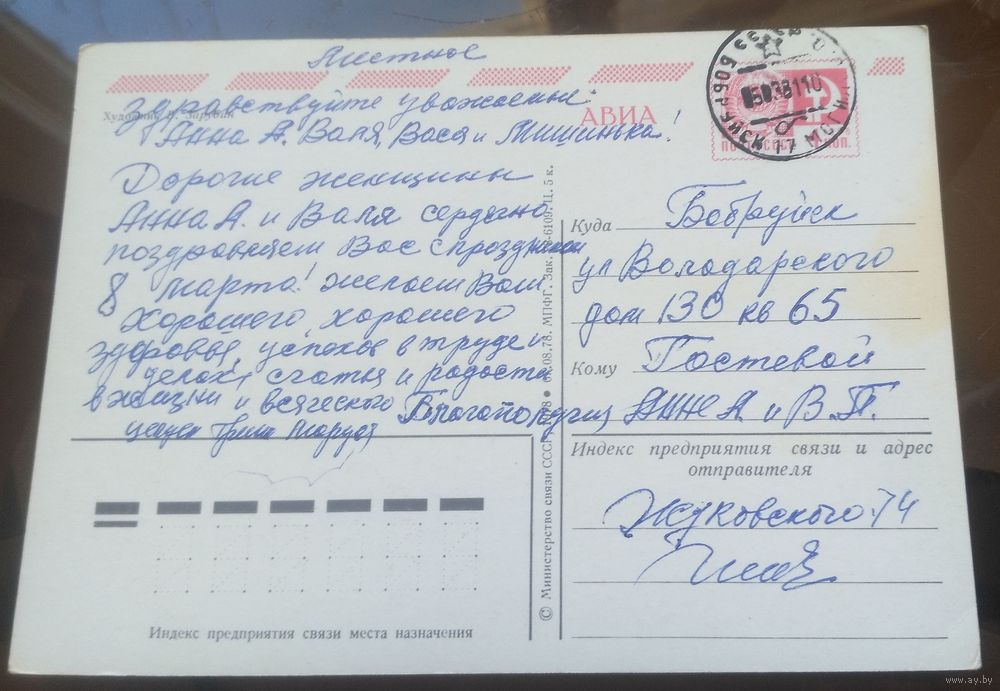 Местное
Художник В. Зарубин
АВИА
Здравствуйте уважаемые:
Анна А. Валя, Вася и Мишинька!
Дорогие женщины
Анна А. и Валя сердечно
поздравляем Вас с праздником
8 марта! желаем Вам
хорошего, хорошего
здоровья, успехов в труде и
делах, счастья и радости
в жизни и всяческого Благополучия
целуем Гриша Маруся
Куда Бобруйск
ул Володарского
дом 130 кв 65
Кому Гостевой
Анне А и В.П.
Индекс предприятия связи и адрес
отправителя
Жуковского 74
Индекс предприятия связи места назначения
© Министерство связи СССР
08.78. МПФГ. Зак. 6109. Ц. 5 к.
www.ay.by